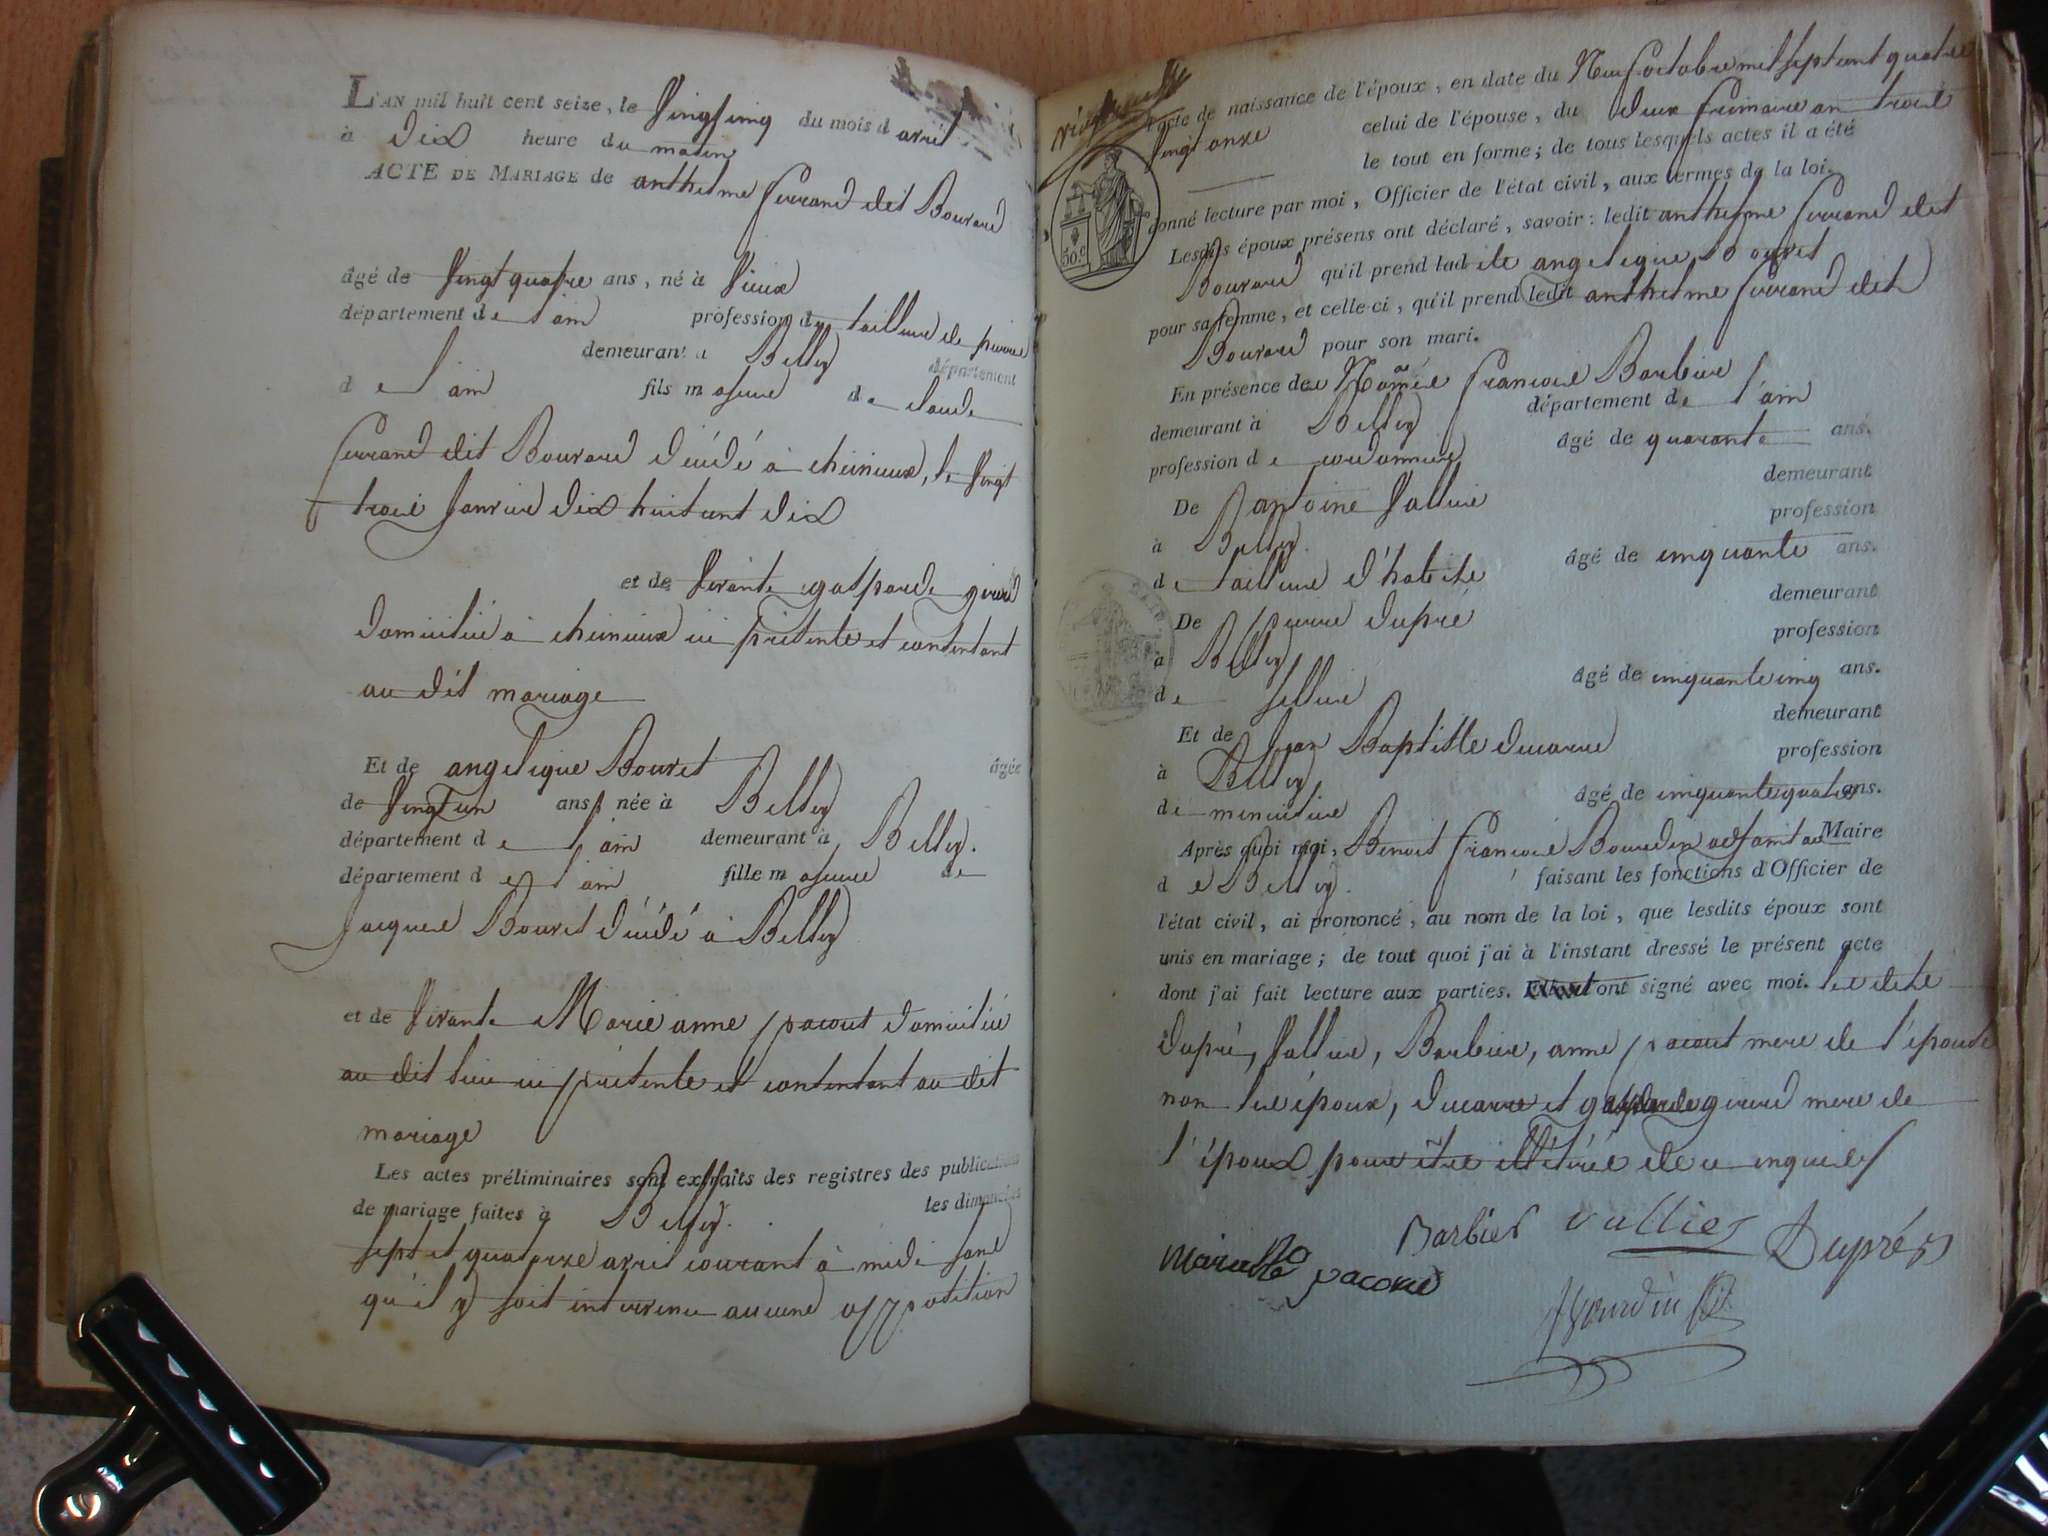 L'AN mil huit cent seize, le Vingt cinq du mois d avril
à Dix heure du matin
ACTE DE MARIAGE de anthelme ferrand dit Bouvard
âgé de Vingt quatre ans, né à Vieux
département de l'ain profession de tailleur de pierre
demeurant à Belley département
de l'ain fils majeur de claude
ferrand dit Bouvard décédé à cheinieux, le Vingt
trois Janvier dix huit cent dix
et de Vivante gasparde girerd
domiciliée à cheinieux ici présente et consentant
au dit mariage
Et de angelique Bouvet âgée
de Vingt un ans, née à Belley
département de l'ain demeurant à Belley.
département de l'ain fille majeure de
Jacques Bouvet décédé à Belley
et de Vivante Marie anne pacout domiciliée
au dit lieu ici présente et consentant au dit
mariage
Les actes préliminaires sont extraits des registres des publications
de mariage faites à Belley. les dimanches
sept et quatorze avril courant à midi sans
qu'il y soit intervenu aucune opposition
l'acte de naissance de l'époux, en date du Neuf octobre mil sept cent quatre
Vingt onze celui de l'épouse, du deux frimaire an trois
le tout en forme; de tous lesquels actes il a été
donné lecture par moi, Officier de l'état civil, aux termes de la loi.
Lesdits époux présens ont déclaré, savoir: ledit anthelme ferrand dit
Bouvard qu'il prend ladite angelique Bouvet
pour sa femme, et celle-ci, qu'il prend ledit anthelme ferrand dit
Bouvard pour son mari.
50.c
En présence de françois Barbier
demeurant à Belley département de l'ain
profession de cordonnier âgé de quarante ans.
De antoine Vallier demeurant
à Belley profession
de tailleur d'habits âgé de cinquante ans.
De pierre dupré demeurant
à Belley profession
de sellier âgé de cinquante cinq ans.
Et de Jean Baptiste ducarre demeurant
à Belley profession
de menuisier âgé de cinquante quatre ans.
Après quoi moi, Benoit françois Bourdin adjoint au Maire
de Belley. faisant les fonctions d'Officier de
l'état civil, ai prononcé, au nom de la loi, que lesdits époux sont
unis en mariage; de tout quoi j'ai à l'instant dressé le présent acte
dont j'ai fait lecture aux parties. Et ont signé avec moi. les dits
dupré, Vallier, Barbier, anne pacout mere de l'épouse
non les époux, ducarre et gasparde girerd mere de
l'époux pour être illitérés de ce enquis
Barbier Vallier Dupré
pacout
Bourdin